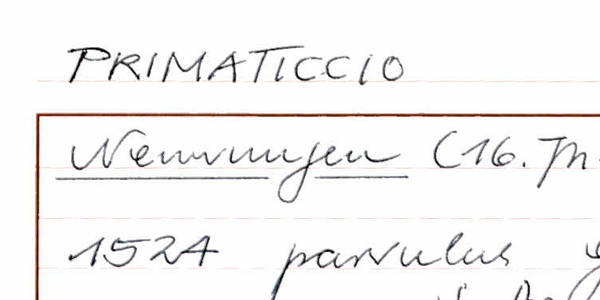 PRIMATICCIO
Nennungen (16. Jh.
1524 parvulus